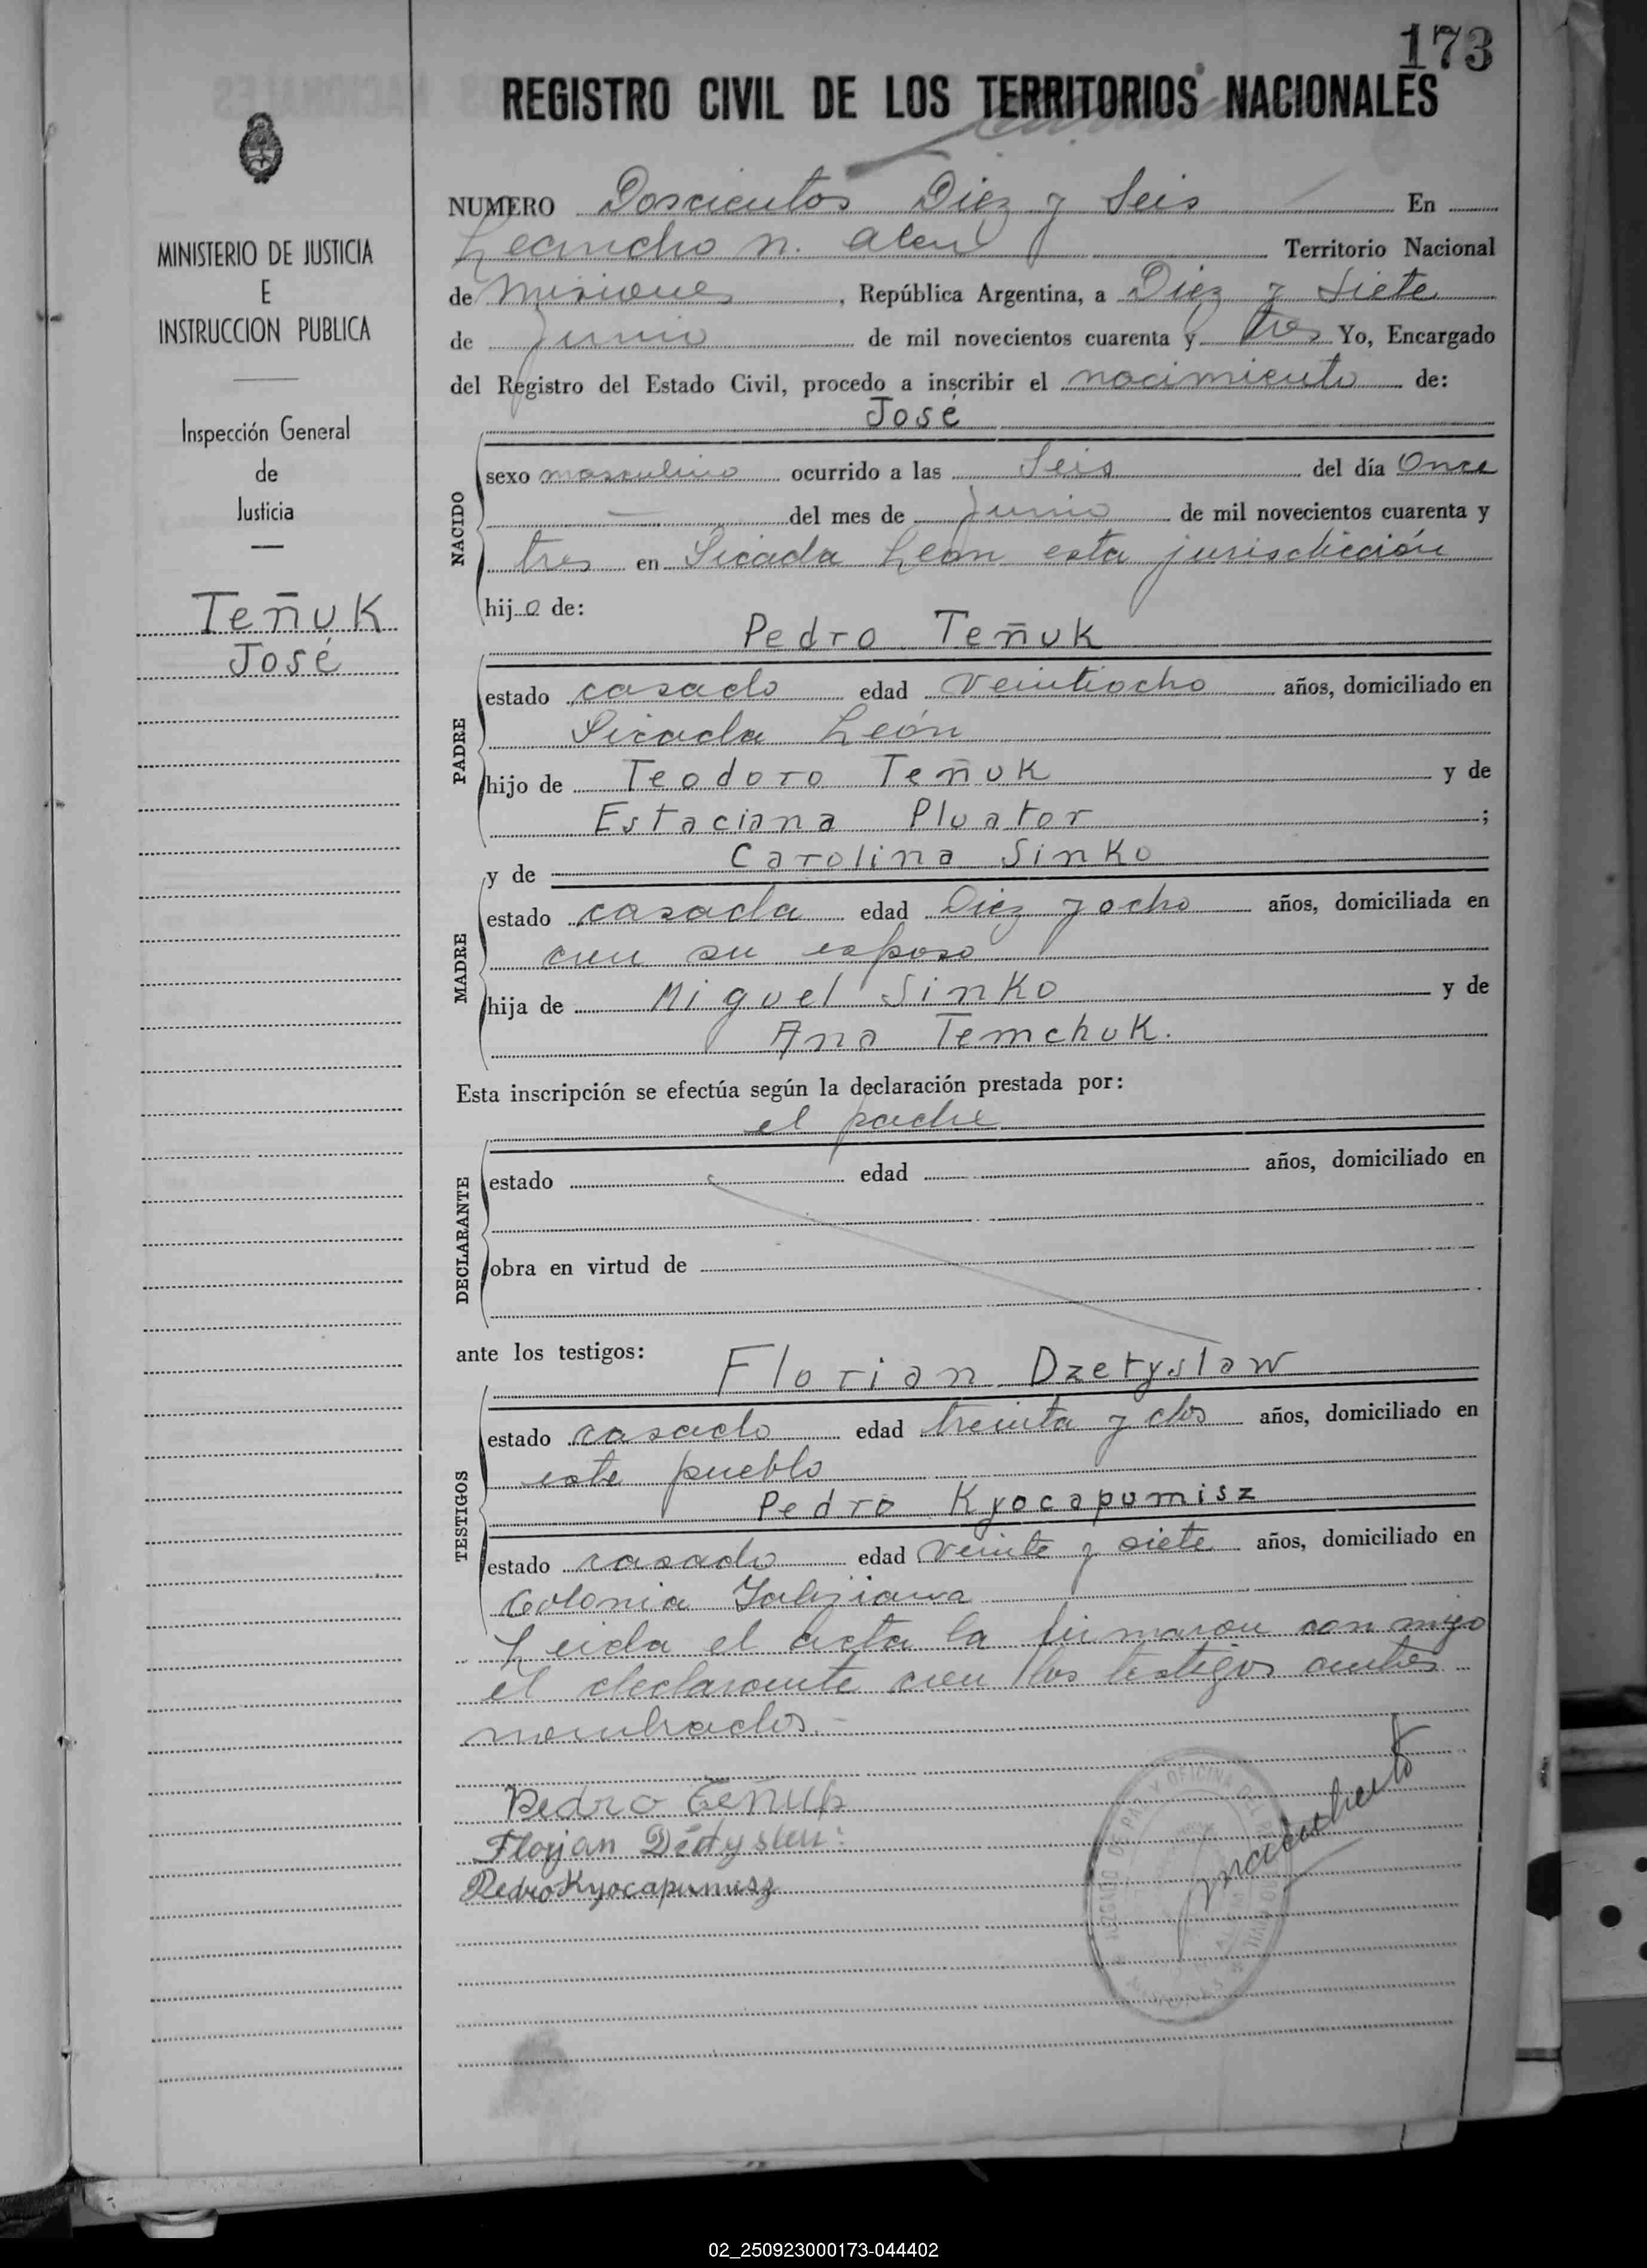 173
REGISTRO CIVIL DE LOS TERRITORIOS NACIONALES
MINISTERIO DE JUSTICIA
E
INSTRUCCION PUBLICA
Inspección General
de
Justicia
Teñuk
José
NUMERO Doscientos Diez y Seis En
Leandro N. Alem Territorio Nacional
de Misiones, República Argentina, a Diez y Siete
de Junio de mil novecientos cuarenta y tres Yo, Encargado
del Registro del Estado Civil, procedo a inscribir el nacimiento de:
José
NACIDO
sexo masculino ocurrido a las Seis del día Once
— del mes de Junio de mil novecientos cuarenta y
tres en Picada León esta jurisdicción
hijo de:
Pedro Teñuk
PADRE
estado casado edad veintiocho años, domiciliado en
Picada León
hijo de Teodoro Teñuk y de
Estaciana Pluator;
y de Carolina Sinko
MADRE
estado casada edad Diez y ocho años, domiciliada en
con su esposo
hija de Miguel Sinko y de
Ana Temchuk.
Esta inscripción se efectúa según la declaración prestada por:
el padre
DECLARANTE
estado edad años, domiciliado en
obra en virtud de
ante los testigos:
Florian Dzetyslaw
TESTIGOS
estado casado edad treinta y dos años, domiciliado en
este pueblo
Pedro Kyocapumisz
estado casado edad veinte y siete años, domiciliado en
Colonia
Leida el acta la firmaron con migo
el declarante con los testigos antes
nombrados.-
Pedro Teñuk
Florjan
Pedro Kyocapumisz
JUZGADO DE PAZ Y OFICINA DEL REGISTRO CIVIL
02_250923000173-044402